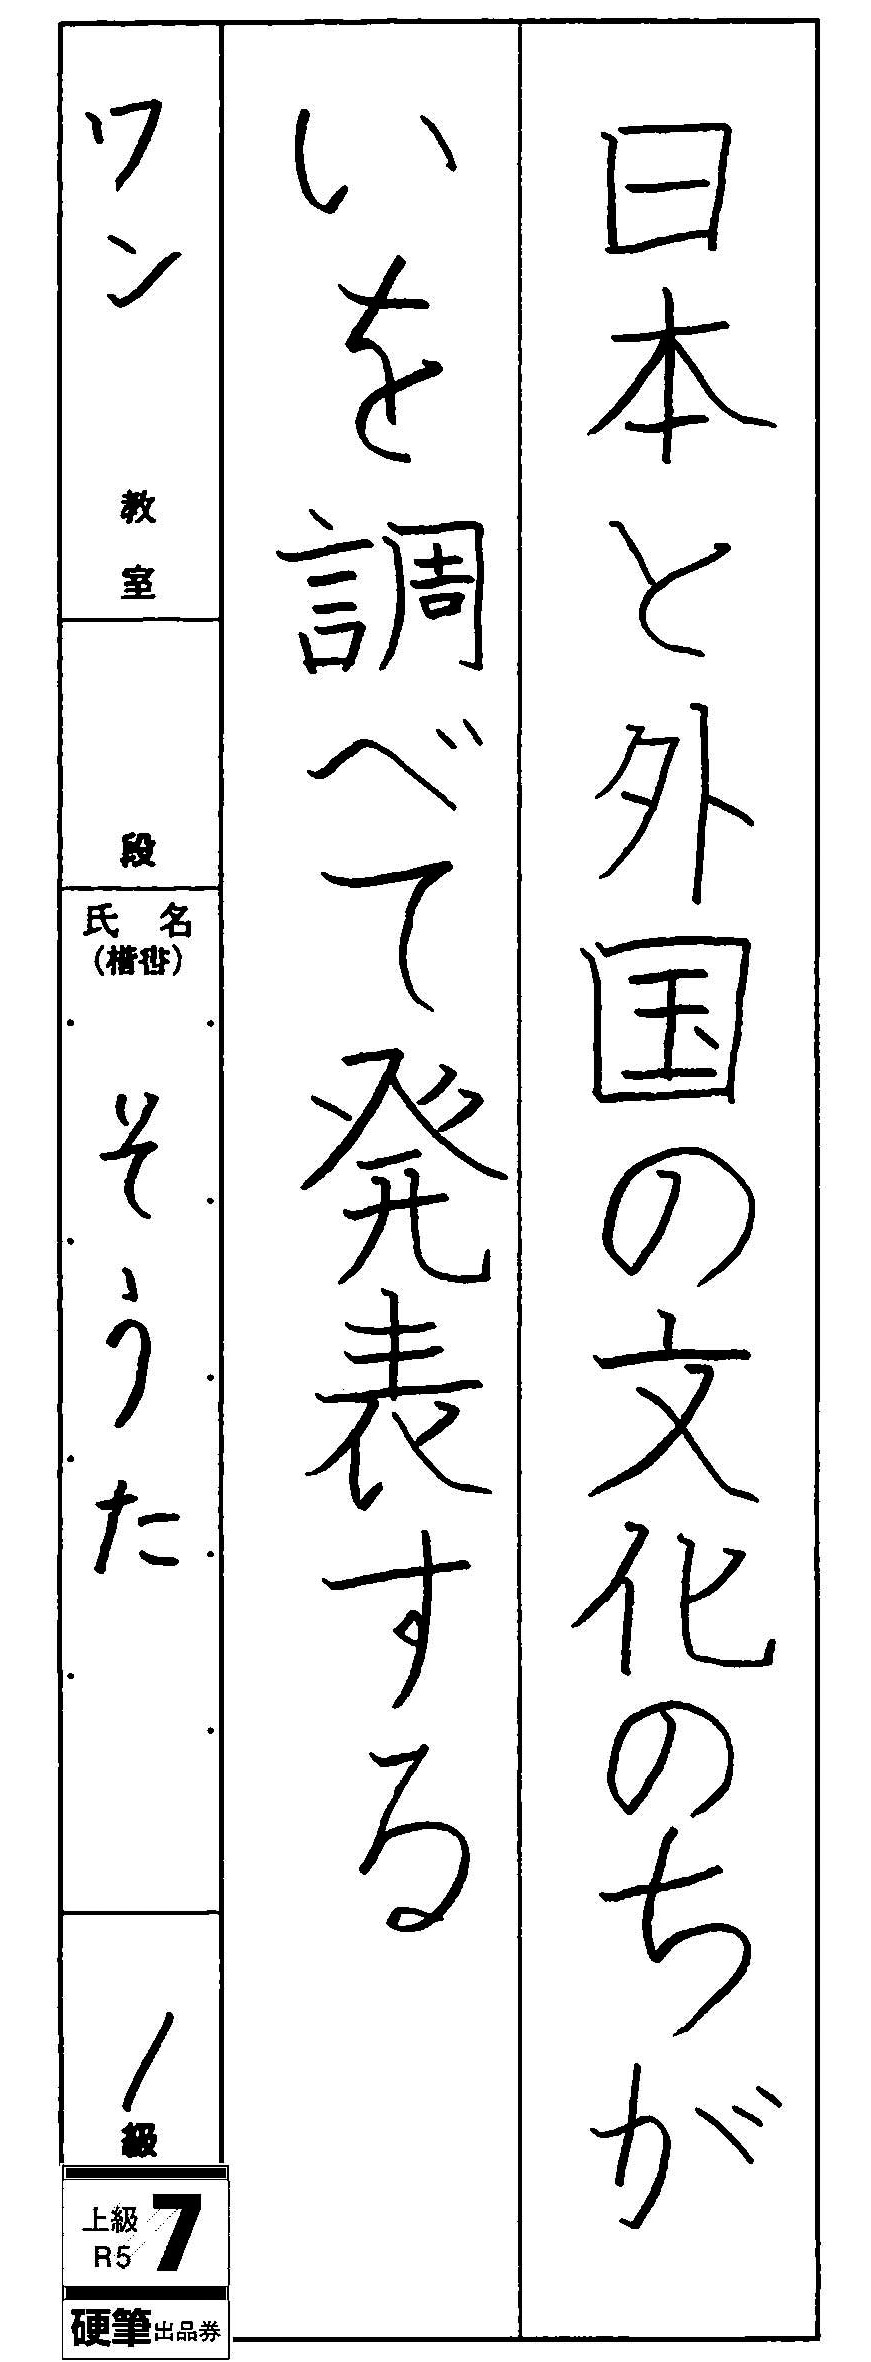 日本と外国の文化のちが
いを調べて発表する
ワン 教室
段
氏名
(楷書)
そうた
1 級
上級
R5
7
硬筆出品券